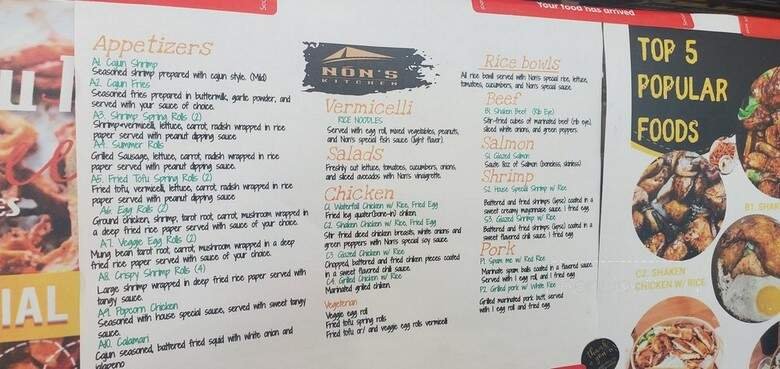 Your food has arrived
Appetizers
A1. Cajun Shrimp
Seasoned shrimp prepared with cajun style. (Mild)
A2. Cajun Fries
Seasoned fries prepared in buttermilk, garlic powder, and
served with your sauce of choice.
A3. Shrimp Spring Rolls (2)
Shrimp+vermicelli, lettuce, carrot, radish wrapped in rice
paper served with peanut dipping sauce.
A4. Summer Rolls
Grilled Sausage, lettuce, carrot, radish wrapped in rice
paper served with peanut dipping sauce.
A5. Fried Tofu Spring Rolls (2)
Fried tofu, vermicelli, lettuce, carrot, radish wrapped in rice
paper served with peanut dipping sauce
A6. Egg Rolls (2)
Ground chicken, shrimp, tarot root, carrot, mushroom wrapped in
a deep fried rice paper served with sauce of your choice.
A7. Veggie Egg Rolls (2)
Mung bean, tarot root, carrot, mushroom wrapped in a deep
fried rice paper served with sauce of your choice.
A8. Crispy Shrimp Rolls (4)
Large shrimp wrapped in deep fried rice paper served with
tangy sauce.
A9. Popcorn Chicken
Seasoned with house special sauce, served with sweet tangy
sauce.
A10. Calamari
Cajun seasoned, battered fried squid with white onion and
jalapeno
NON'S
KITCHEN
Vermicelli
RICE NOODLES
Served with egg roll, mixed vegetables, peanuts,
and Non's special fish sauce (light flavor).
Salads
Freshly cut lettuce, tomatoes, cucumbers, onions,
and sliced avocados with Non's vinaigrette.
Chicken
C1. Waterfall Chicken w/ Rice, Fried Egg
Fried leg quater(bone-in) chiken.
C2. Shaken Chicken w/ Rice, Fried Egg
Stir fried diced chicken breasts, white onions and
green peppers with Non's special soy sauce.
C3. Glazed Chicken w/ Rice
Chopped, battered and fried chiken pieces coated
in a sweet flavored chili sauce.
C4. Grilled Chicken w/ Rice
Marinated grilled chiken.
Vegeterian
Veggie egg roll
Fried tofu spring rolls
Fried tofu or/ and veggie egg rolls vermicelli
Rice bowls
All rice bowl served with Non's special rice, lettuce,
tomatoes, cucumbers, and Non's special sauce.
Beef
B1. Shaken Beef (Rib Eye)
Stir-fried cubes of marinated beef (rib eye),
sliced white onions, and green peppers.
Salmon
S1. Glazed Salmon
Saute 8oz of Salmon (boneless, skinless)
Shrimp
S2. House Special Shrimp w/ Rice
Battered and fried shrimps (6psc) coated in a
sweet creamy mayonnaise sauce, 1 fried egg.
S3. Glazed Shrimp w/ Rice
Battered and fried shrimps (6psc) coated in a
sweet flavored chili sauce, 1 fried egg.
Pork
P1. Spam me w/ Red Rice
Marinate spam balls coated in a flavored sauce.
Served with 1 egg roll and 1 fried egg
P2. Grilled pork w/ White Rice
Grilled marinated pork butt, served
with 1 egg roll and fried egg
TOP 5
POPULAR
FOODS
B1. SHA
C2. SHAKEN
CHICKEN W/ RICE
IAL
thank
you